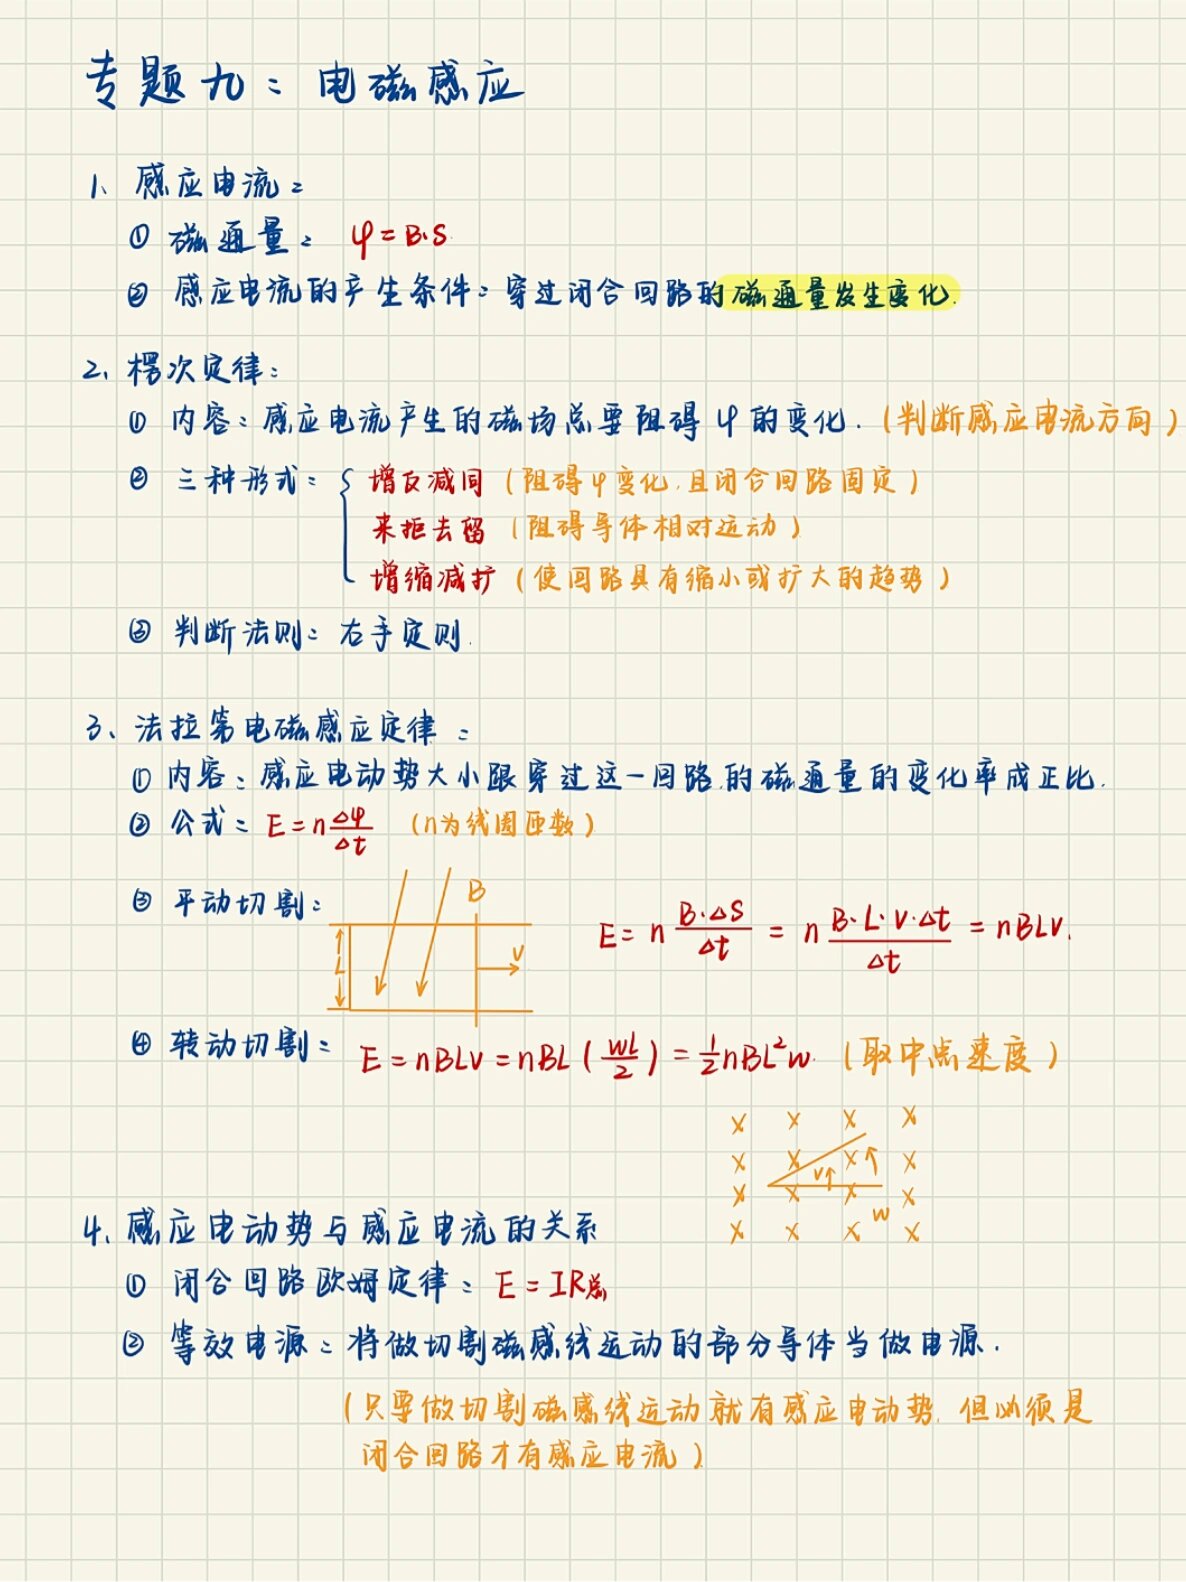 专题九：电磁感应
1、感应电流：
① 磁通量： φ=B·S
② 感应电流的产生条件：穿过闭合回路的磁通量发生变化.
2、楞次定律：
① 内容：感应电流产生的磁场总要阻碍φ的变化.（判断感应电流方向）
② 三种形式：{ 增反减同（阻碍φ变化,且闭合回路固定）
来拒去留（阻碍导体相对运动）
增缩减扩（使回路具有缩小或扩大的趋势）
③ 判断法则：右手定则.
3、法拉第电磁感应定律：
① 内容：感应电动势大小跟穿过这一回路的磁通量的变化率成正比.
② 公式：E=n Δφ/Δt （n为线圈匝数）
③ 平动切割： L B v E=n B·ΔS/Δt = n B·L·v·Δt/Δt = nBLv.
④ 转动切割： E=nBLv=nBL(wL/2)=1/2nBL²w.（取中点速度）
x x x x
x x x x
v
x x x x
w
x x x x
4、感应电动势与感应电流的关系
① 闭合回路欧姆定律：E=IR总
② 等效电源：将做切割磁感线运动的部分导体当做电源.
（只要做切割磁感线运动就有感应电动势,但必须是
闭合回路才有感应电流）